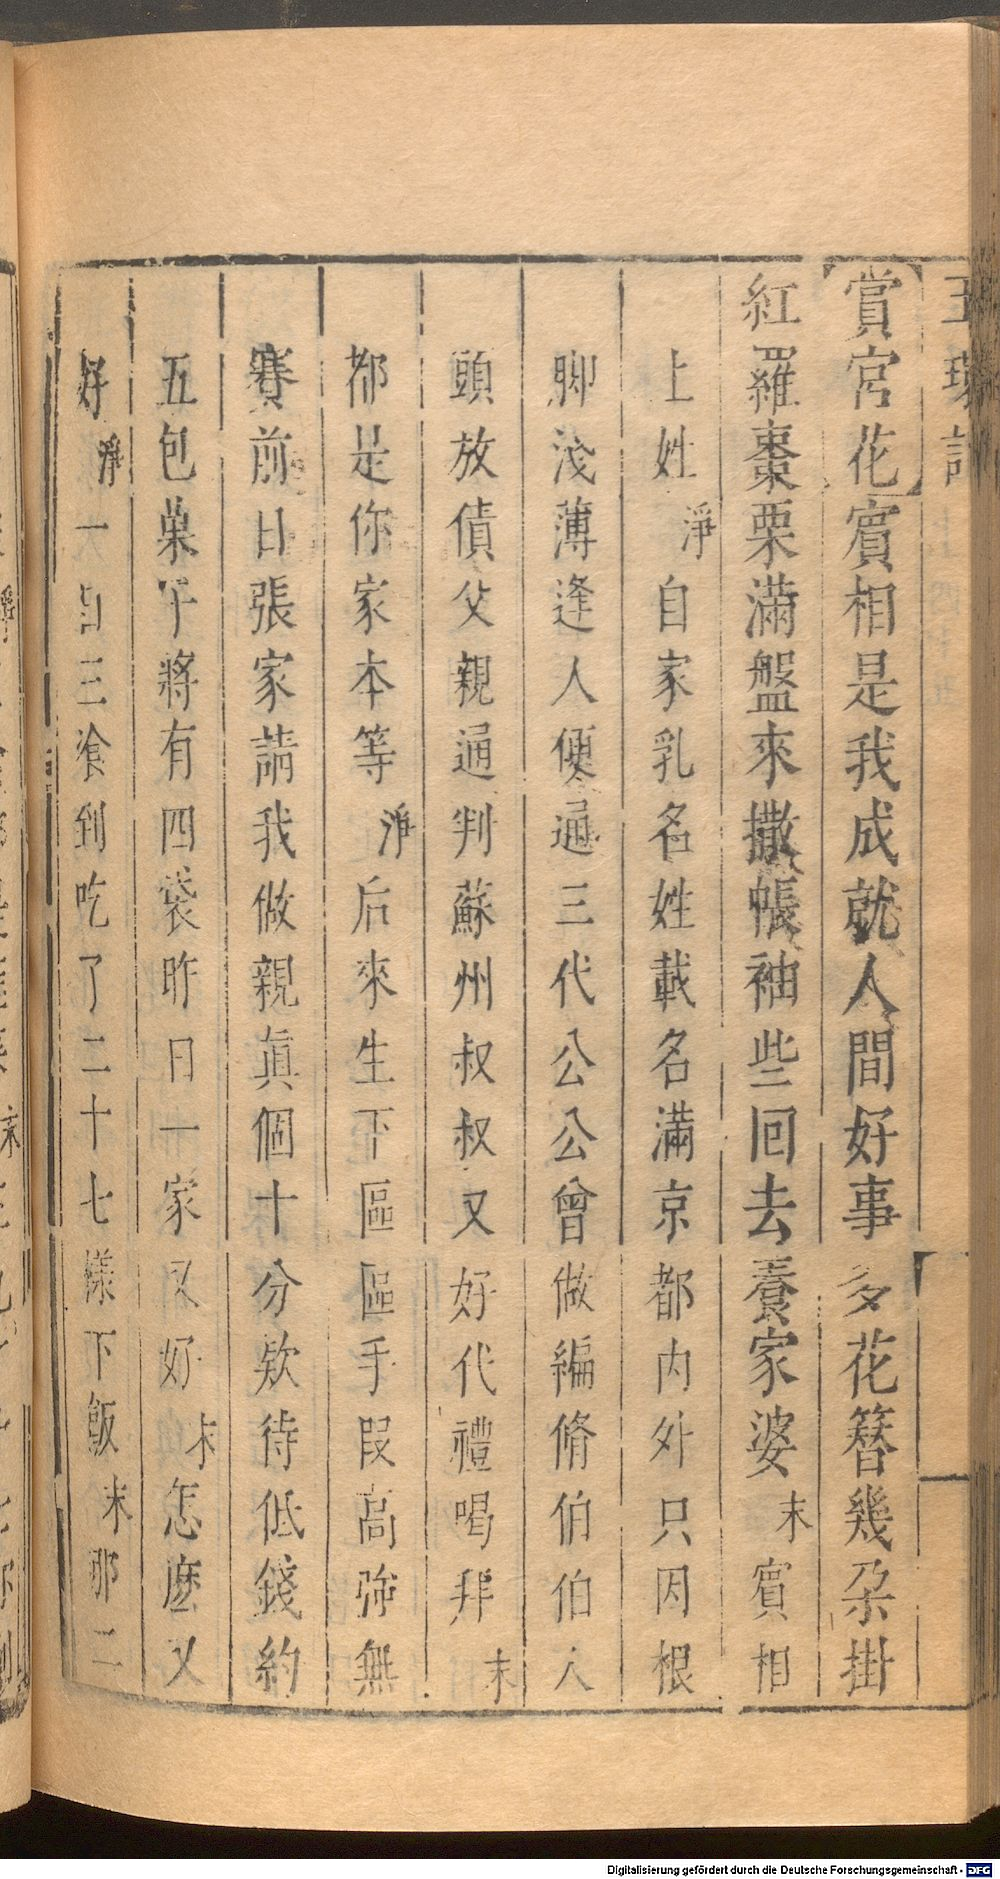 玉環記
賞宮花賓相是我成就人間好事多花簪幾朶掛
紅羅棗栗滿盤來撒帳袖些回去養家婆末賓相
上姓淨自家乳名姓載名滿京都內外只因根
脚淺薄逢人便通三代公公曾做編脩伯伯人
頭放債父親通判蘇州叔叔又好代禮喝拜末
都是你家本等淨后來生下區區手叚高強無
賽前日張家請我做親眞個十分欵待低錢約
五包菓子將有四袋昨日一家又好末怎麽又
好淨一日三飡到吃了二十七樣下飯末那二
Digitalisierung gefördert durch die Deutsche Forschungsgemeinschaft - DFG